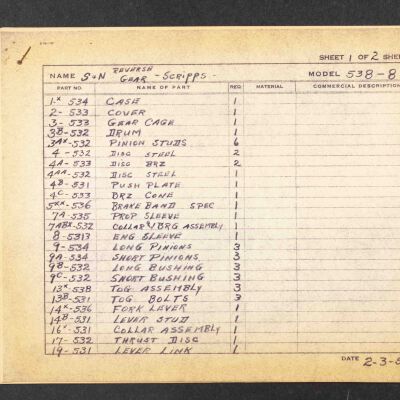 1
SHEET 1 OF 2 SHE
NAME S+N REVERSE GEAR - SCRIPPS - MODEL 538-8
PART NO. NAME OF PART REQ. MATERIAL COMMERCIAL DESCRIPTION
1X 534 CASE 1
2- 533 COVER 1
3- 533 GEAR CAGE 1
3B-532 DRUM 1
3AX-532 PINION STUDS 6
4-532 DISC STEEL 2
4A-533 DISC BRZ 2
4AA-532 DISC STEEL 1
4B-531 PUSH PLATE 1
4C-533 BRZ CONE 1
5XX-536 BRAKE BAND SPEC 1
7A-535 PROP SLEEVE 1
7ABX-532 COLLAR/BRG ASSEMBLY 1
8-5313 ENG SLEEVE 1
9-534 LONG PINIONS 3
9A-534 SHORT PINIONS 3
9B-532 LONG BUSHING 3
9C-532 SHORT BUSHING 3
13X-538 TOG ASSEMBLY 3
13B-531 TOG BOLTS 3
14X-536 FORK LEVER 1
14B-531 LEVER STUD 1
16X-531 COLLAR ASSEMBLY 1
17-532 THRUST DISC 1
19-531 LEVER LINK 1
DATE 2-3-5